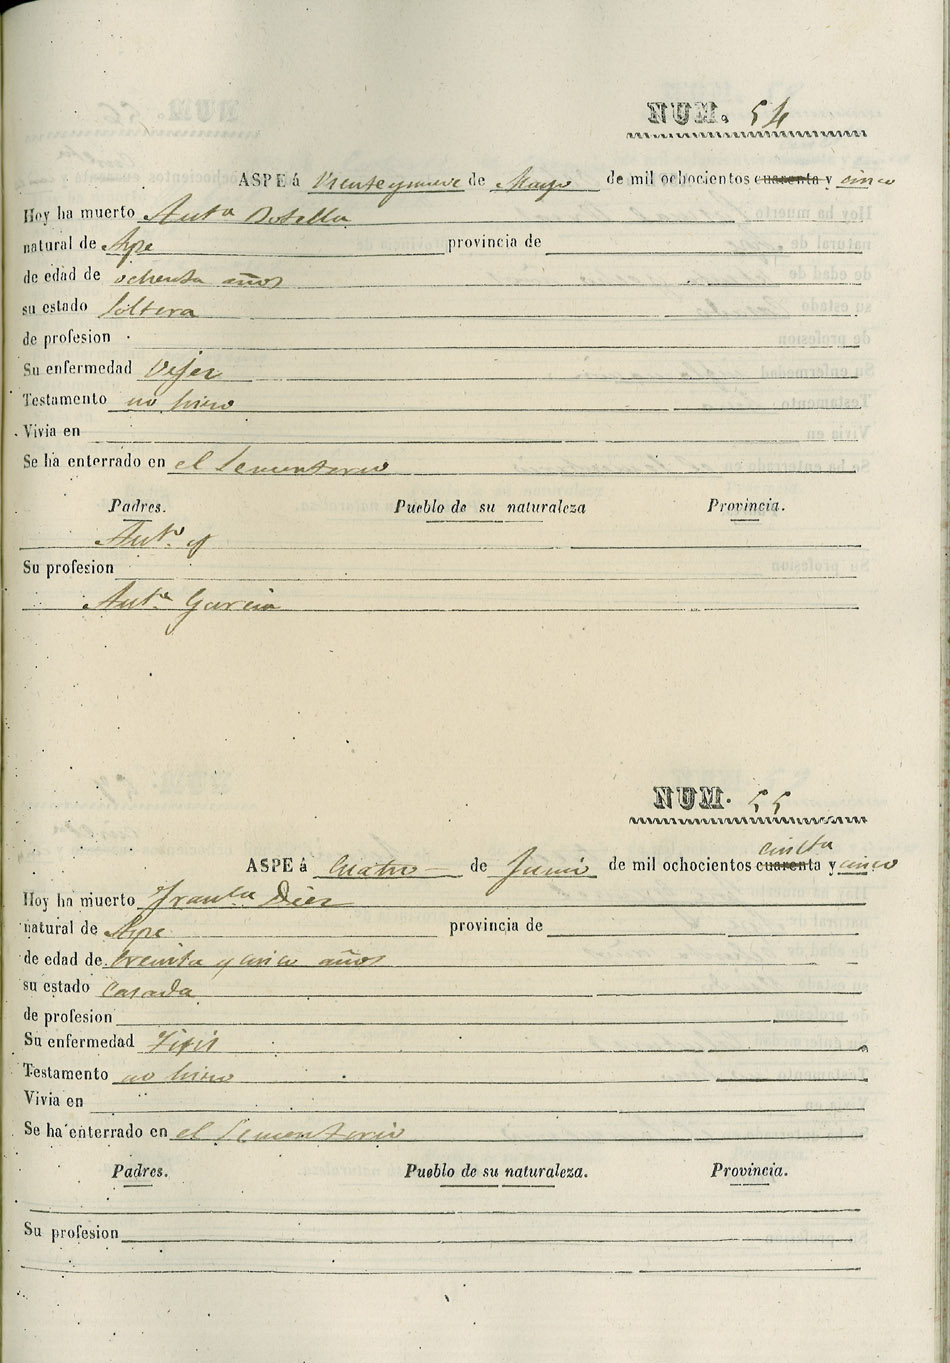 NUM. 54
ASPE á Veinteynueve de Mayo de mil ochocientos cuarenta y cinco
Hoy ha muerto Ant.a Botella
natural de Aspe provincia de
de edad de ochenta años
su estado Soltera
de profesion
Su enfermedad Vejez
Testamento no hizo
Vivia en
Se ha enterrado en el Sementerio
Padres. Pueblo de su naturaleza Provincia.
Ant.o y
Su profesion
Ant.a Garcia
NUM. 55
cincta
ASPE á Cuatro de Junio de mil ochocientos cuarenta y cinco
Hoy ha muerto Fran.ca Diez
natural de Aspe provincia de
de edad de treinta y cinco años
su estado Casada
de profesion
Su enfermedad Tisis
Testamento no hizo
Vivia en
Se ha enterrado en el Sementerio
Padres. Pueblo de su naturaleza. Provincia.
Su profesion